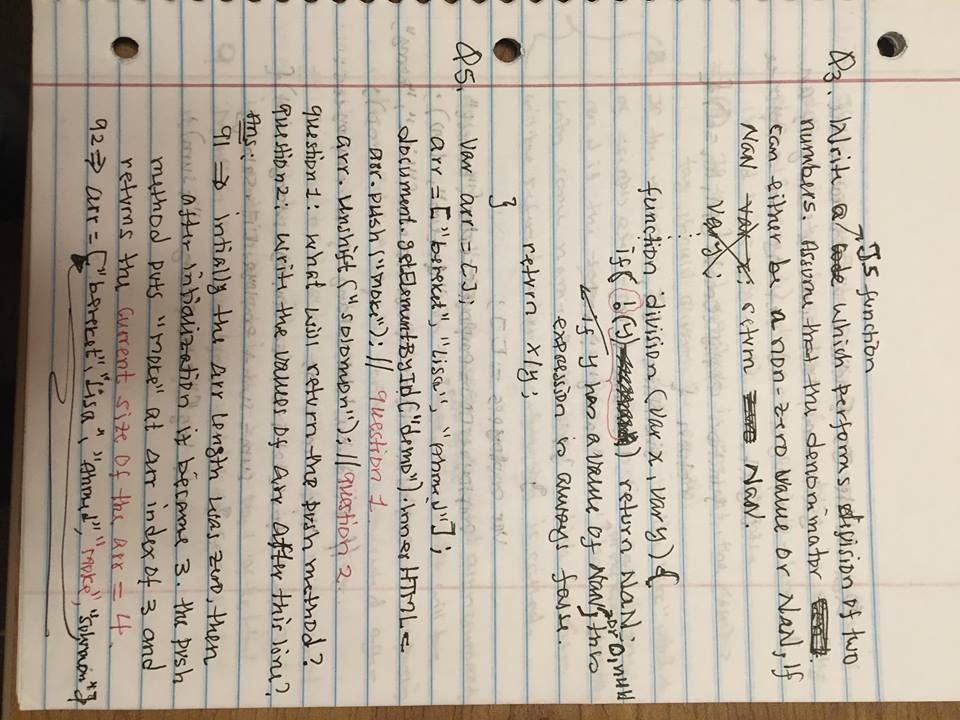 JS function
Q3. Write a which performs division of two
numbers. Assume that the denominator
can either be a non-zero value or NaN, If
NaN var x; return NaN.
Var y;
function division (var x, var y) {
if( !(y) ) return NaN;
→ If y has a value of NaN, or 0, null this
expression is always false.
return x/y;
}
Q5. Var arr = [];
arr = ["bereket", "Lisa", "Ahmed"];
document.getElementById("demo").innerHTML =
arr.push("moke"); // question 1
arr.unshift("solomon"); // question 2
question1: what will return the push method?
question2: write the values of arr after this line?
Ans:
q1 ⇒ intially the arr length was zero, then
after intialization it became 3. the push
method puts "moke" at arr index of 3 and
returns the current size of the arr = 4.
q2 ⇒ arr = ["bereket", "Lisa", "Ahmed", "moke", "solomon"]